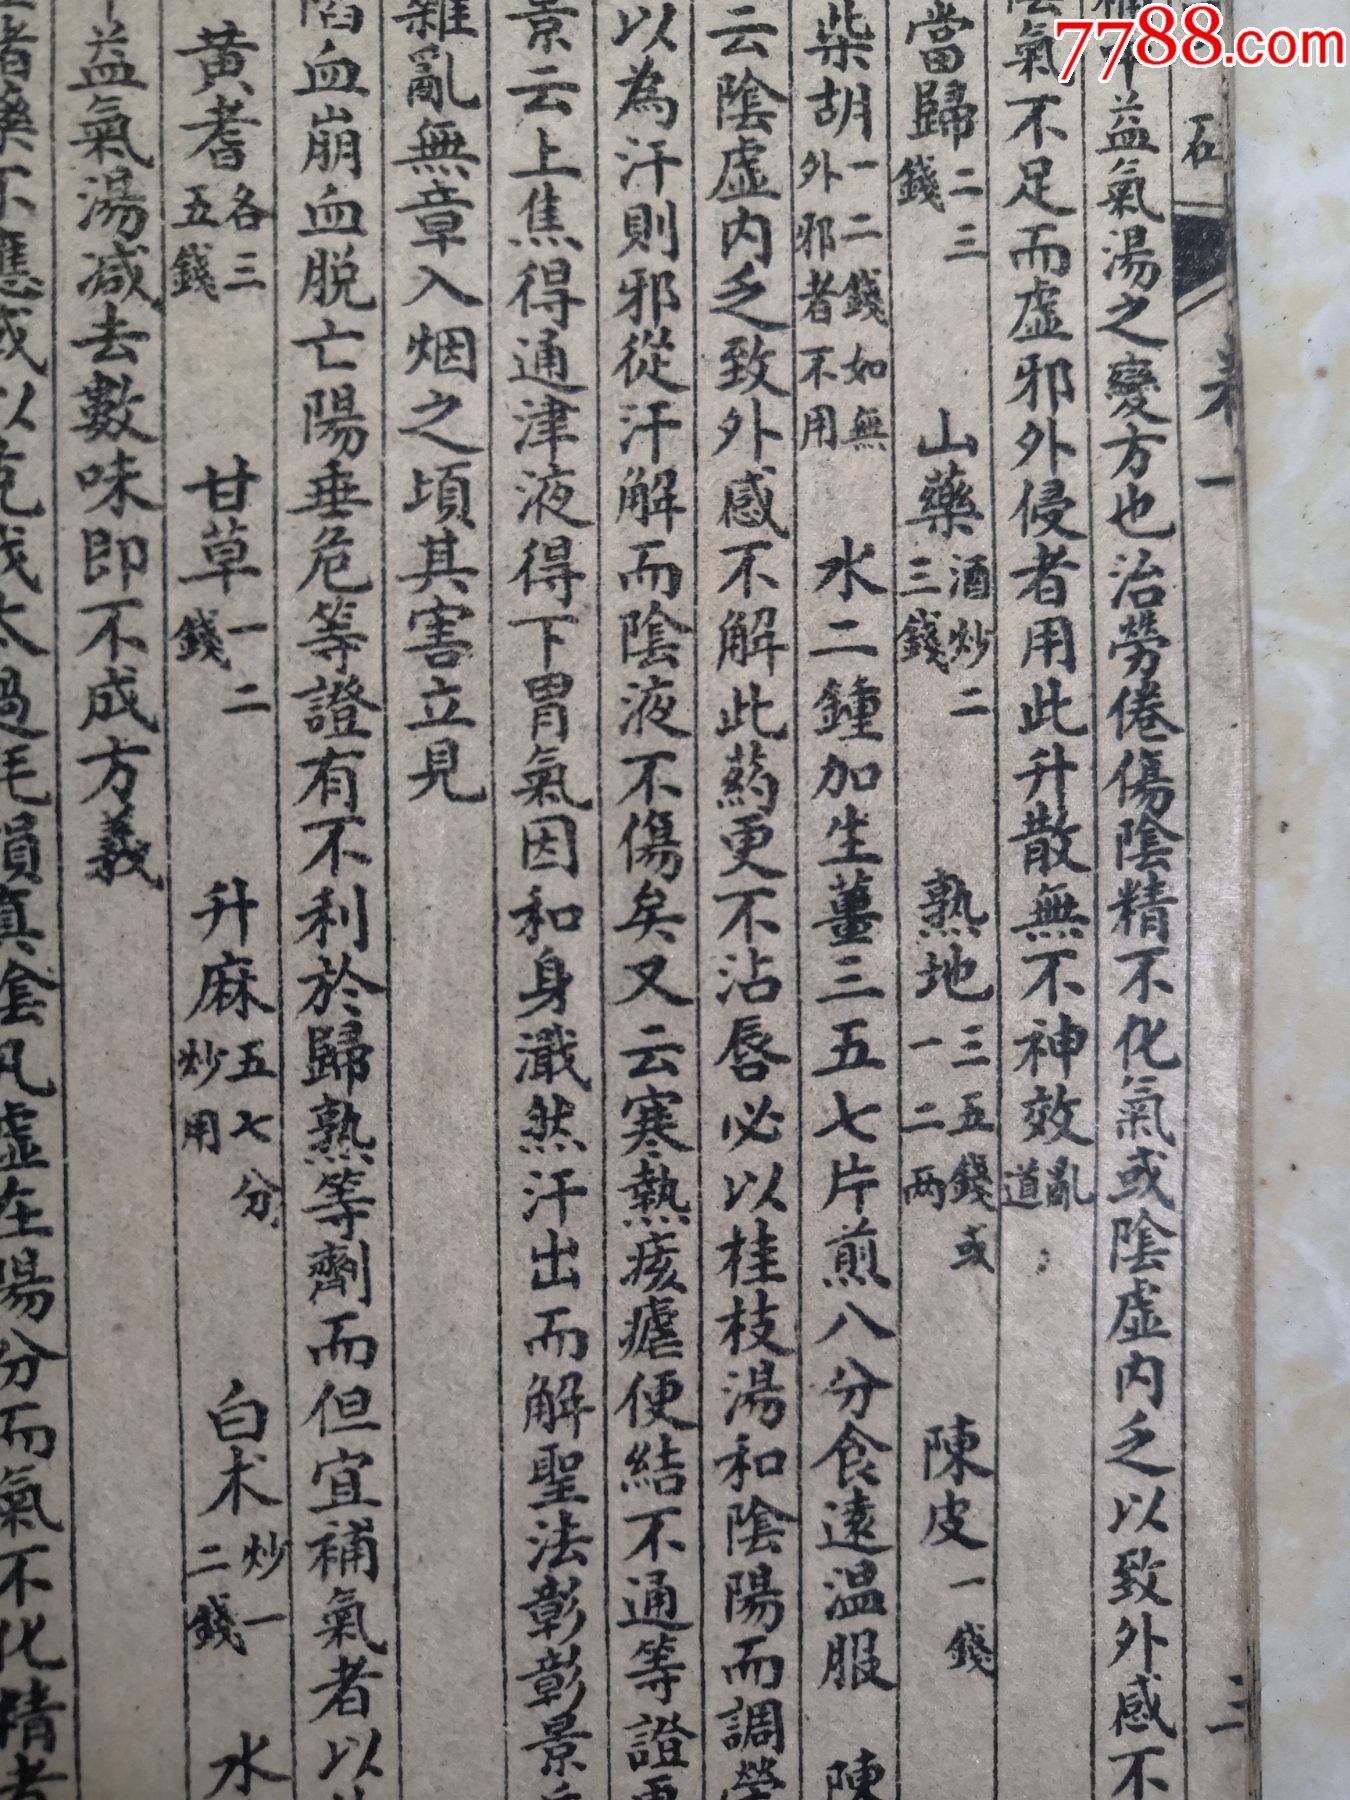 7788.com
石
卷一
三
益氣湯之變方也治勞倦傷陰精不化氣或陰虛內乏以致外感不
氣不足而虛邪外侵者用此升散無不神效亂道
當歸二三錢 山藥酒炒二三錢 熟地三五錢或一二兩 陳皮一錢
柴胡一二錢如無外邪者不用 水二鍾加生薑三五七片煎八分食遠温服 陳
云陰虛內乏致外感不解此葯更不沾唇必以桂枝湯和陰陽而調營
以為汗則邪從汗解而陰液不傷矣又云寒熱痎瘧便結不通等證
景云上焦得通津液得下胃氣因和身濈然汗出而解聖法彰彰景
雜亂無章入烟之頃其害立見
陷血崩血脱亡陽垂危等證有不利於歸熟等劑而但宜補氣者以
黄耆各三五錢 甘草一二錢 升麻五七分炒用 白术炒一二錢 水
益氣湯減去數味即不成方義
諸藥不應或以克伐太過耗損真陰凡虛在陽分而氣不化精者